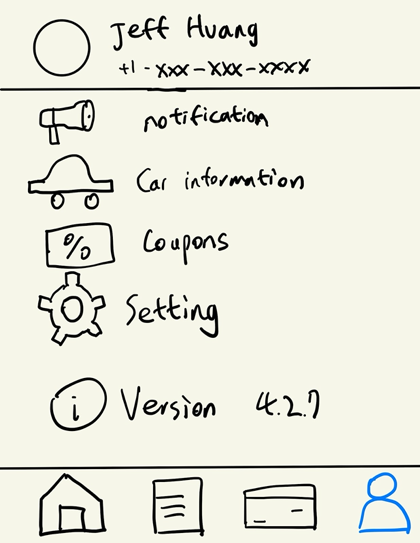 Jeff Huang
+1-xxx-xxx-xxxx
notification
Car information
%
Coupons
Setting
i
Version 4.2.7